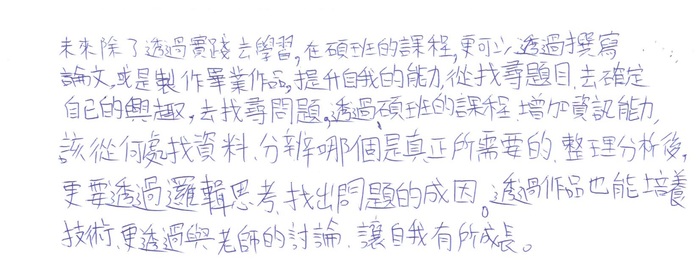 未來除了透過實踐去學習,在碩班的課程,更可以透過撰寫
論文,或是製作畢業作品,提升自我的能力,從找尋題目,去確定
自己的興趣,去找尋問題。透過碩班的課程,增加資訊能力,
該從何處找資料、分辨哪個是真正所需要的,整理分析後,
更要透過邏輯思考,找出問題的成因。透過作品也能培養
技術,更透過與老師的討論,讓自我有所成長。